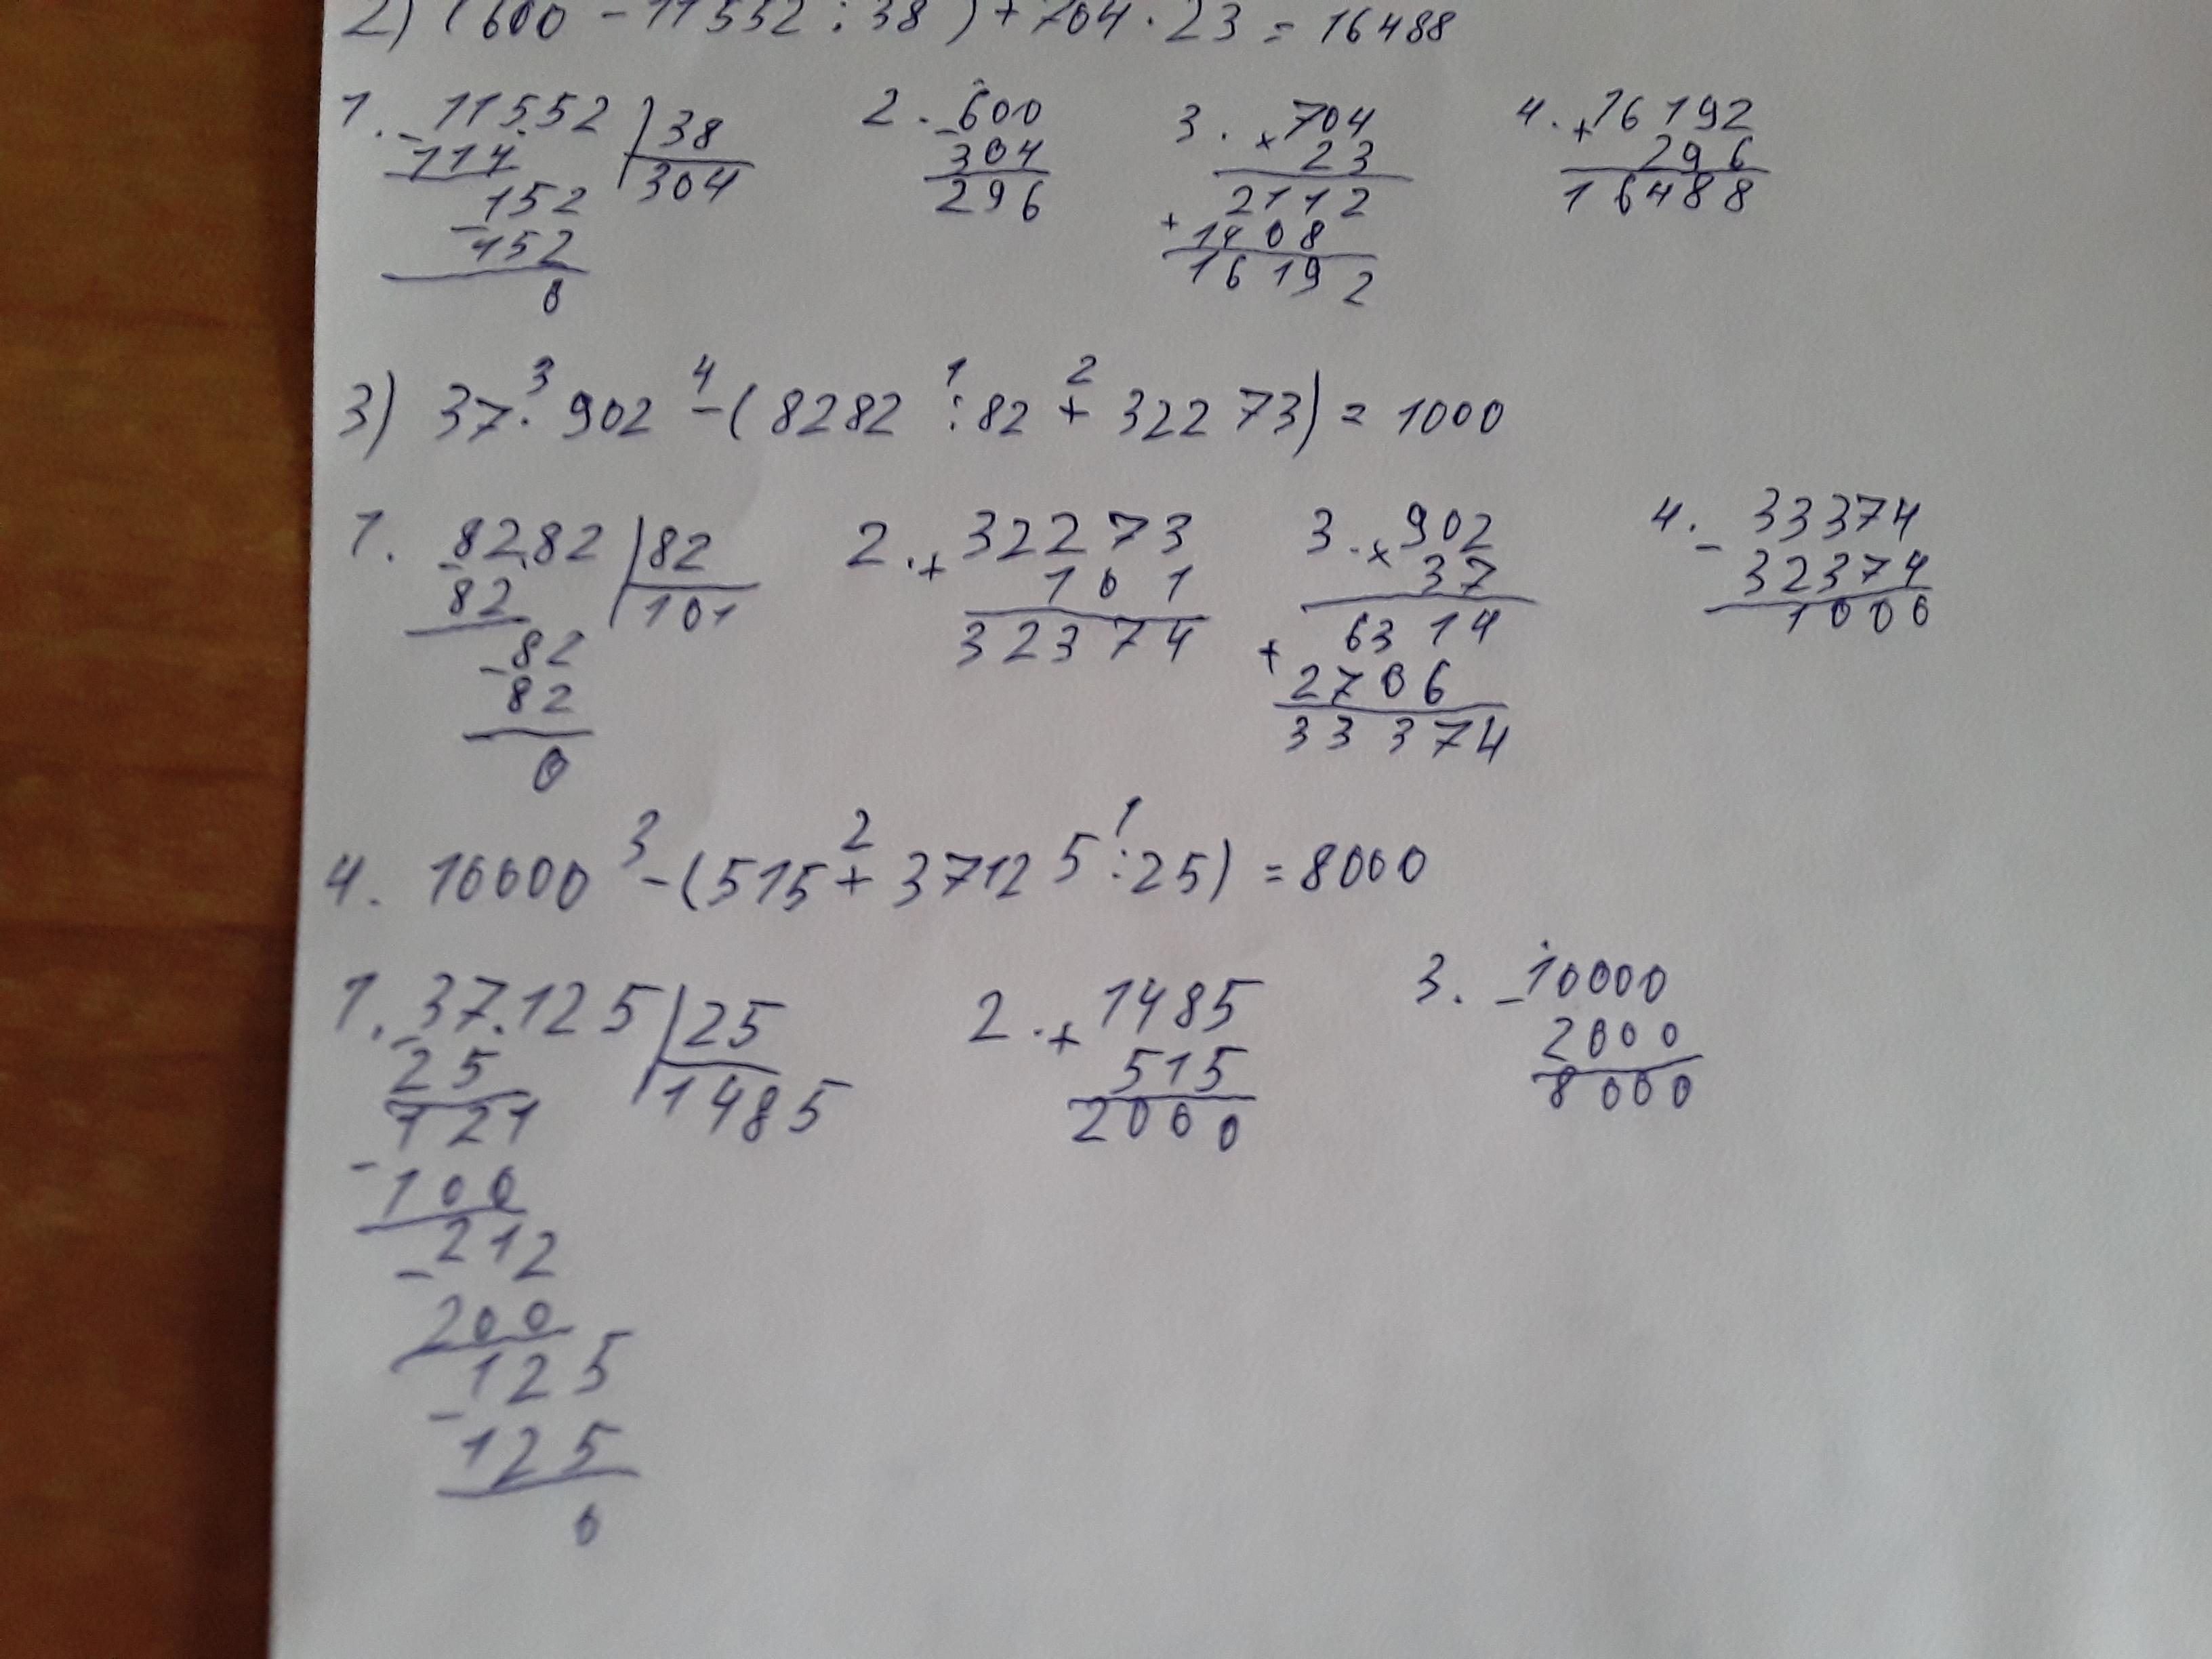 2) (600 - 11552 : 38) + 704 · 23 = 16488
1. - 11552 | 38 2. - 600 3. × 704 4. + 16192
114 304 304 23 296
- 152 296 2112 16488
152 + 1408
0 16192
3 4 1 2
3) 37 · 902 - (8282 : 82 + 32273) = 1000
1. - 8282 | 82 2. + 32273 3. × 902 4. - 33374
82 101 101 37 32374
- 82 32374 6314 1000
82 + 2706
0 33374
3 2 1
4. 10000 - (515 + 37125 : 25) = 8000
1. - 37125 | 25 2. + 1485 3. - 10000
25 1485 515 2000
121 2000 8000
- 100
- 212
200
- 125
125
0